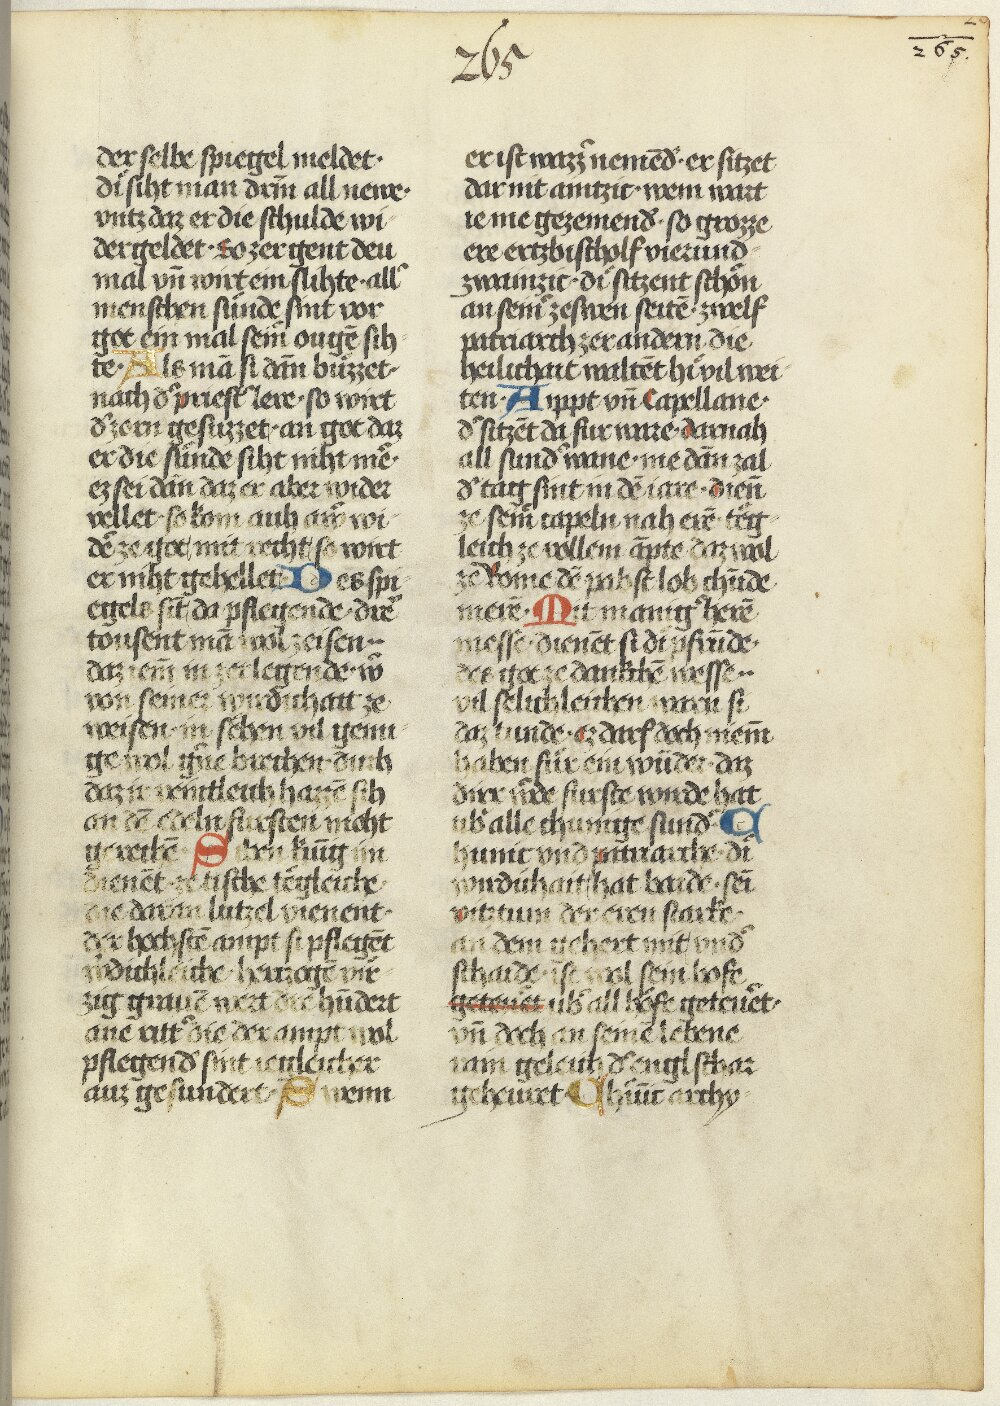 265
265.
der selbe spiegel meldet·
di siht man drin all newe·
vntz daz er die schulde wi-
dergeldet· so zer gent deu
mal vn̄ wirt ein slihte· all
menschen sünde sint vor
got ein mal sein̄ ougē sih-
te· Als mā si dān büzzet·
nach d priest lere· so wirt
d zorn gesüzzet· an got daz
er die sünde siht niht mē·
ez sei dān daz er aber wider
vellet· so kom auh aw wi-
dē ze got mit recht so wirt
er niht gehellet· Des spi-
egels sit da pflegende· dire
tousent mā wol zeisen··
daz iem in zerlegende· w
von seiner wirdichait ze
weisen· in sehen vil genu-
ge wol gne brechen· durh
daz ir veintleich hazzē sih
an dē edeln fursten nicht
gerechē· Siben kunig im
dienēt ze tische tegleiche·
die daran lutzel vienent·
der hochstē ampt si pflegēt
wdichleiche· hertzogē vir-
zig grauē wert dre hūdert
ane ritt die der ampt wol
pflegend sint iegleicher
auz gesundert· Swenn
er ist wazz nemēd· er sitzet
dar nit antzit· wem wart
ie me gezemend· so grozze
ere ertzbischolf vier und-
zwainzic· di sitzent schōn
an sein zeswen seitē· zwelf
patriarch zer andern die
heilichait waltēt hi vil wei-
ten· Aippt vn̄ Capellane·
d sitzēt da fur ware· darnah
all sund wane· me dān zal
d tag sint in dē iare· dienn
ze sem capeln nah erē· teg-
leich ze vollem āpte daz wol
ze Rome dē pabst lob chūde
merē· Mit manig herē
messe· dienēt si di pfrūde·
des got ze danchē wesse··
vil selichleichen warn si
daz lunde· ez darf doch niem
haben für ein wūder· daz
dirr wde furste wirde hat
ub alle chunige sund· C
hunic vnd patriarche· di
wirdichait hat baide· sei
vitztum der eren starke·
an dem gehert mit vnd
schaide· ist wol sein hofe
geteuet ub all höfe geteuet·
vn̄ doch an seine lebene
rain geleich d engl schar
geheuret· Chunic archy-